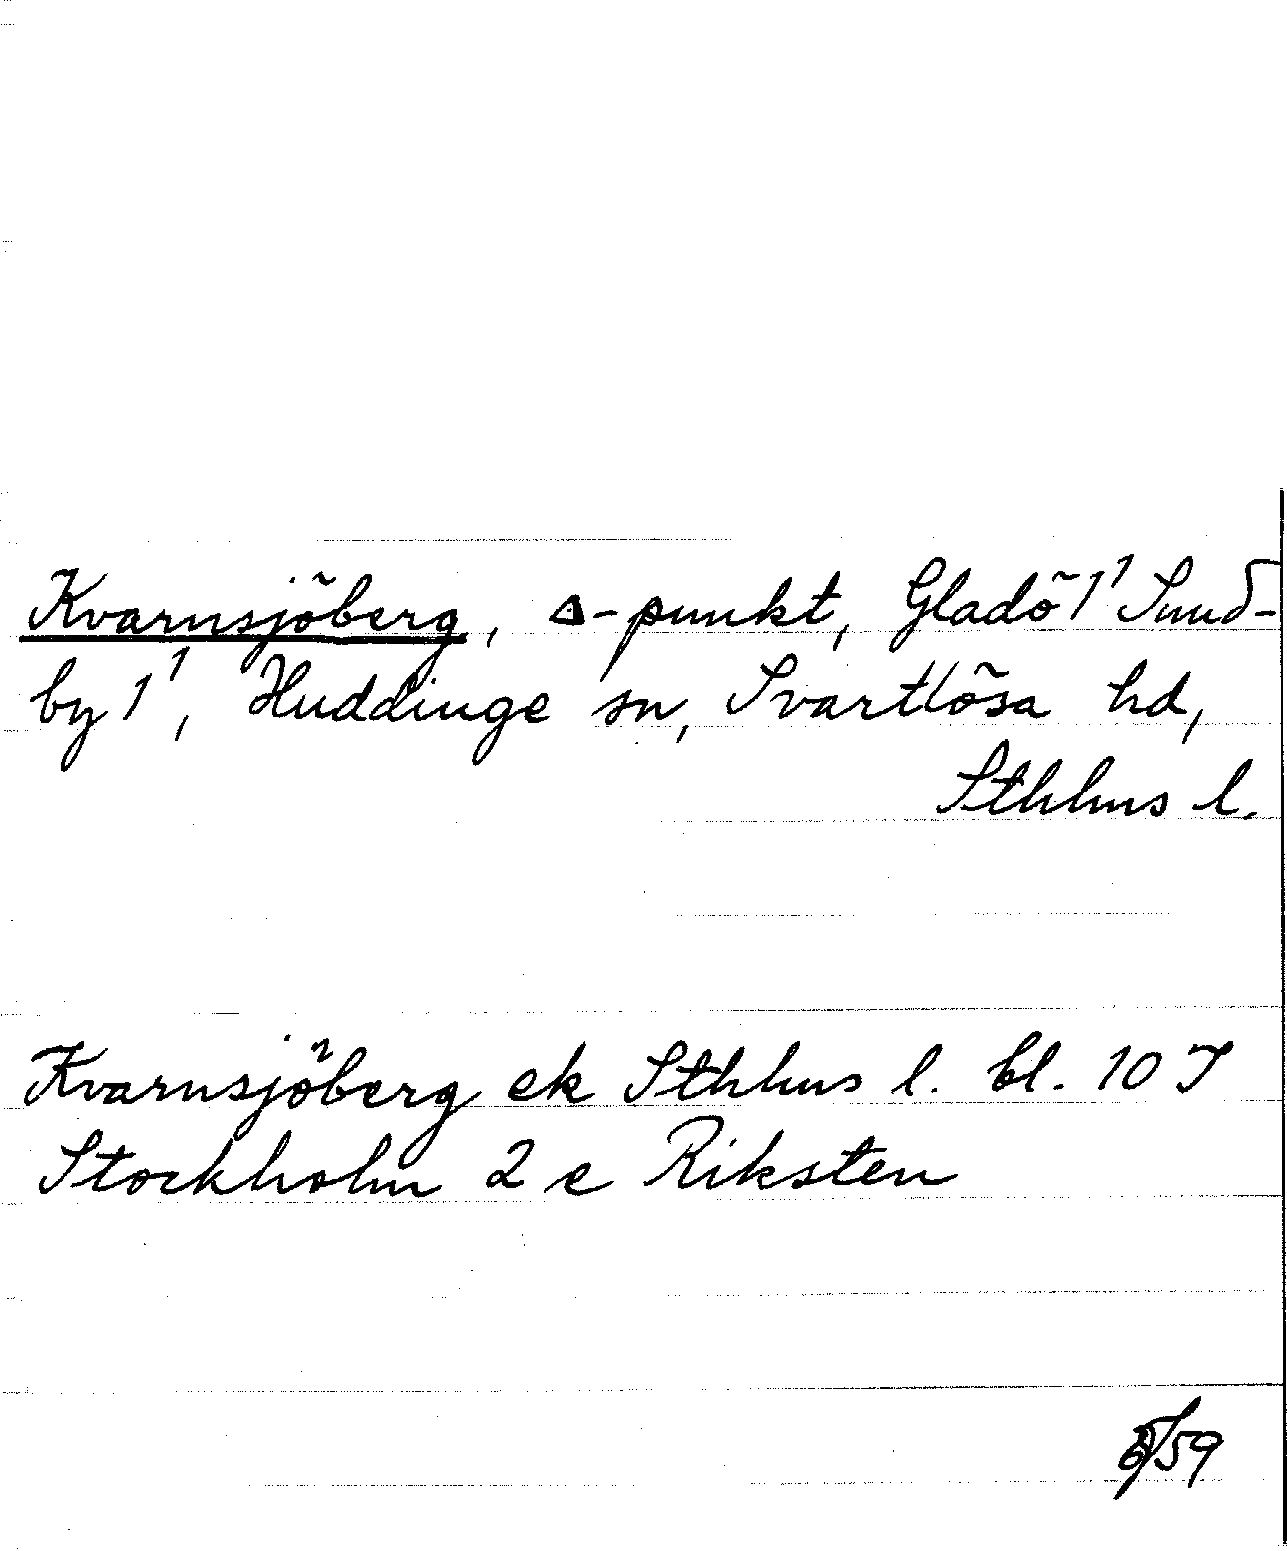 Kvarnsjöberg, Δ-punkt, Gladö 1¹ Sund-
by 1¹, Huddinge sn, Svartlösa hd,
Sthlms l.
Kvarnsjöberg ek Sthlms l. bl. 10 I
Stockholm 2 e Riksten
/59